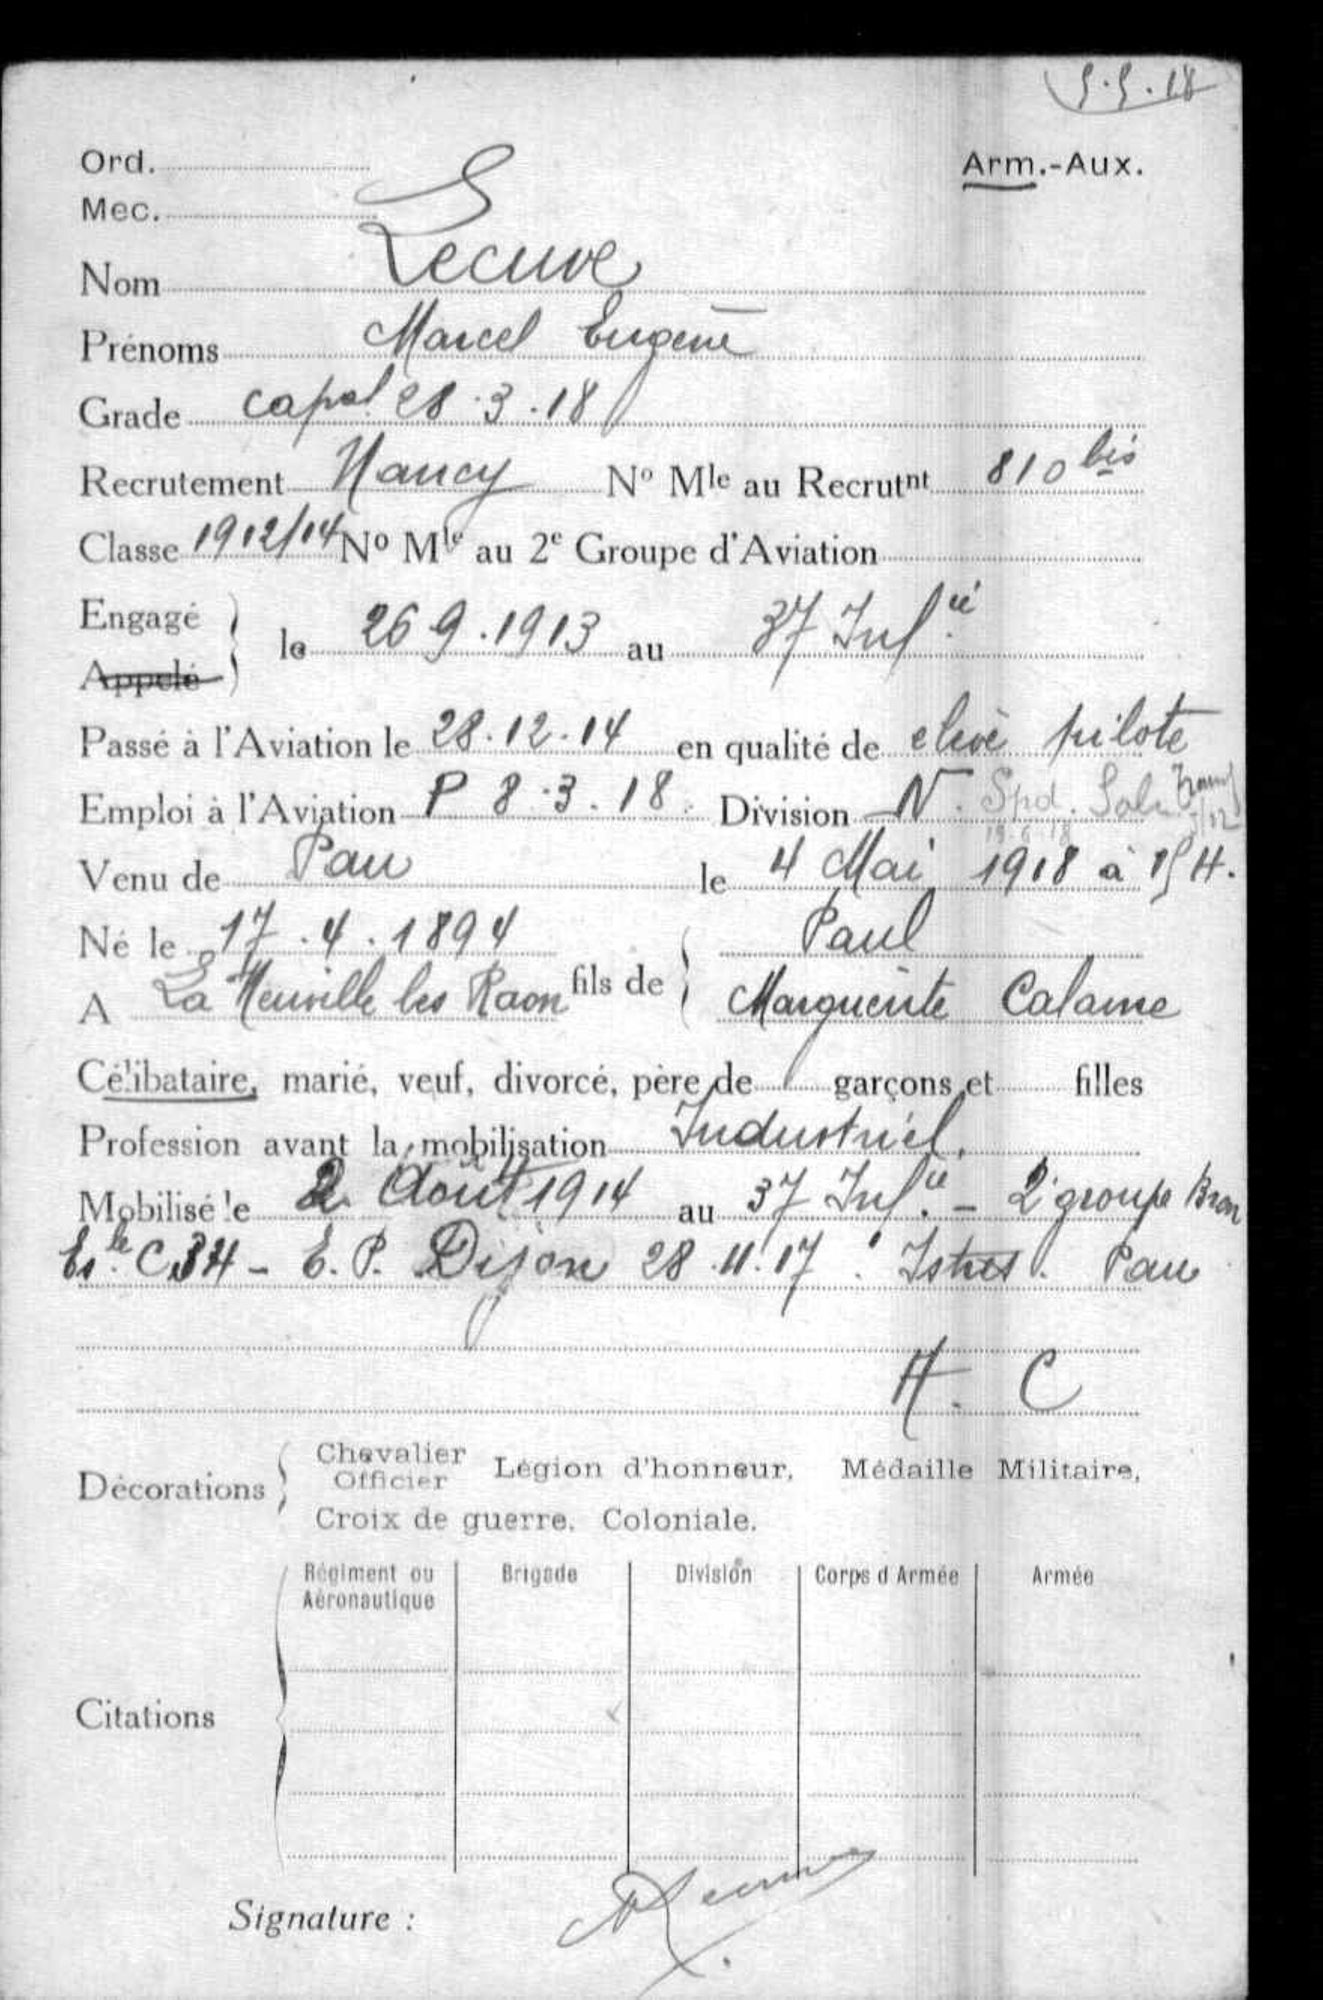 5.5.18
Ord.
Arm.-Aux.
Mec.
Nom Lecuve
Prénoms Marcel Eugène
Grade capal 28.3.18
Recrutement Nancy No Mle au Recrutnt 810 bis
Classe 1912/14 No Mle au 2e Groupe d'Aviation
Engagé
Appelé
le 26 9.1913 au 37 Infie
Passé à l'Aviation le 28.12.14 en qualité de elève pilote
Emploi à l'Aviation P 8.3.18 Division N. Spd.
19.6.18
Venu de Pau le 4 Mai 1918 à 15 H.
Né le 17.4.1894
A La Neuville les Raon fils de Paul
Marguerite Calame
Célibataire, marié, veuf, divorcé, père de garçons et filles
Profession avant la mobilisation Industriel
Mobilisé le 2 Août 1914 au 37 Infie. - 2e groupe Bron
Esle C34 - E. P. Dijon 28.11.17. Istres. Pau
H. C
Décorations Chevalier
Officier Légion d'honneur, Médaille Militaire,
Croix de guerre. Coloniale.
Citations
Régiment ou Aéronautique Brigade Division Corps d Armée Armée
Signature :